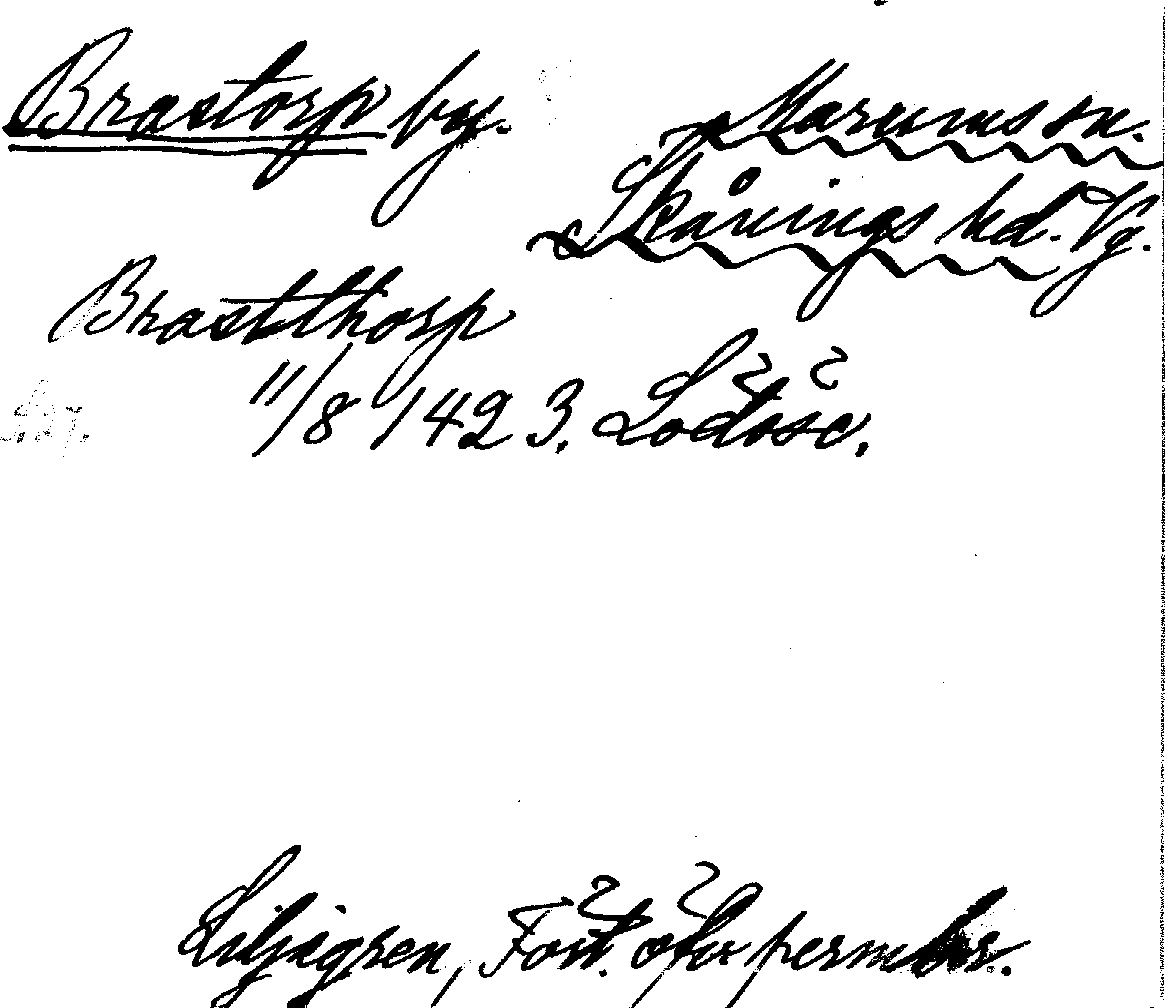 Brastorp by.
Marums sn.
Skånings hd. Vg.
Brastthorp
11/8 1423. Lödöse.
Liljegren, Fört. öfver permbr.